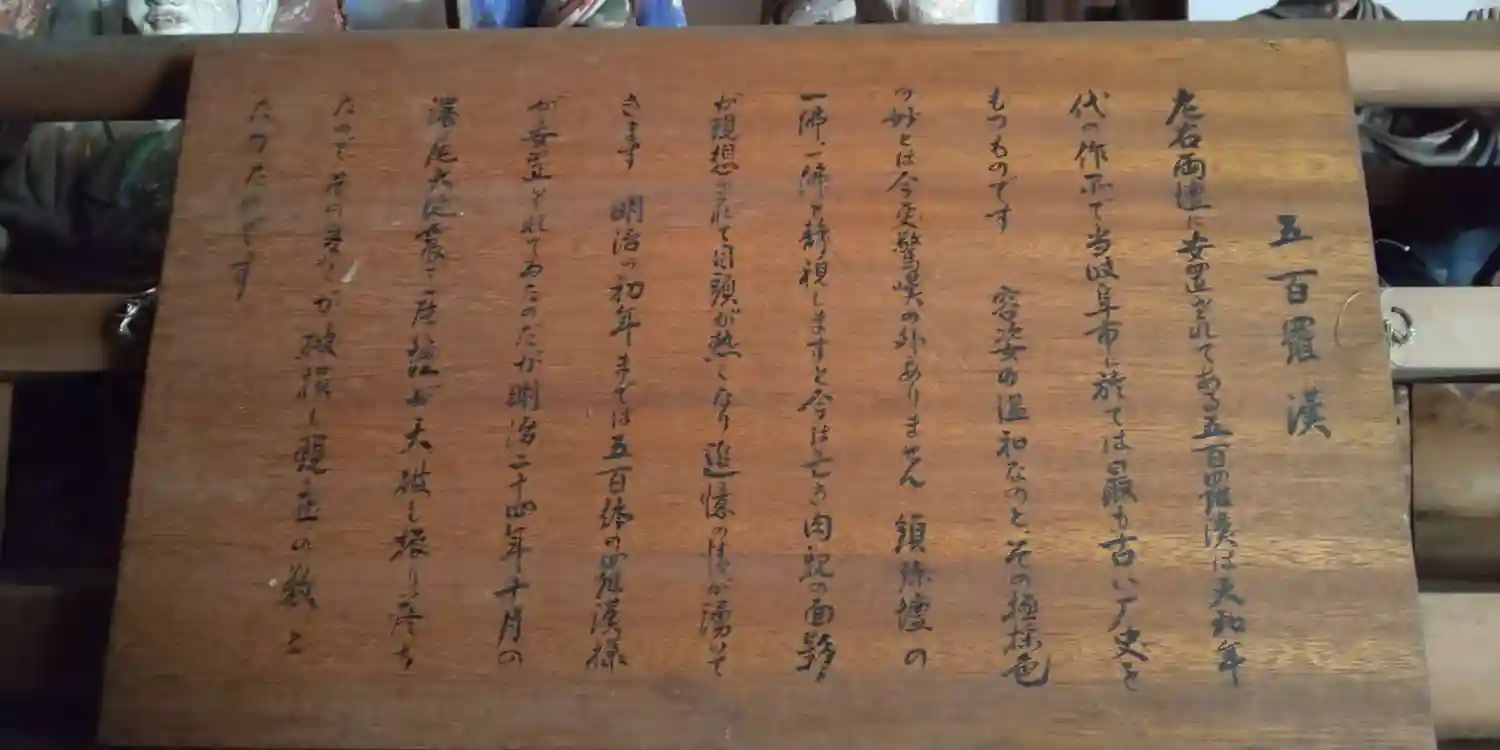 五百羅漢
左右両壇に安置されてある五百羅漢は天和年
代の作品で当岐阜市に於ては最も古い歴史を
もつものです 容姿の温和なのと、その極採色
の妙とは今更驚嘆の外ありません 須弥壇の
一佛、一佛を静視しますと今は亡き肉親の面影
が現想されて目頭が熱くなり追憶の情が湧いて
きます 明治の初年までは五百体の羅漢様
が安置されてあったのだが明治二十四年十月の
濃尾大地震で一座壇が大破し振り落ち
たので、その多くが破損し現在の数と
なったわけです